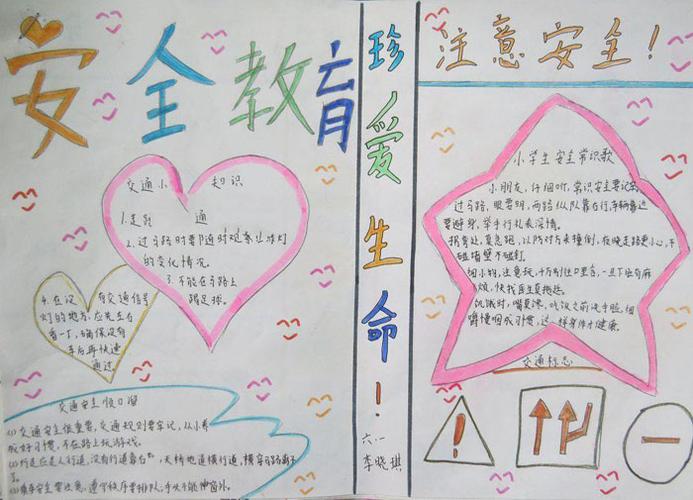 安全教育
珍爱生命！
注意安全！
交通小知识
1.走路 通
2.过马路时要随时观察红绿灯
的变化情况。
3.不能在马路上
踢足球。
4.在没有交通信号
灯的地方,应先左右
看一下,确保没有
车后再快速
通过。
交通安全顺口溜
(1)交通安全很重要,交通规则要牢记,从小养
成好习惯,不在路上玩游戏。
(2)行走应走人行道,没有行道靠右,天桥地道横行道,横穿马路
(3)乘车安全要注意,遵守秩序要排队;手头不能伸窗外。
六.一
李晓琪
小学生安全常识歌
小朋友,仔细听,常识安全要记
过马路,眼要明,一路纵队靠右行,车辆靠近
要避身,举手行礼表深情。
拐弯处,莫急跑,以防对方来撞倒,夜晚走路更小心,不
碰墙壁不碰钉。
细小物,注意玩,千万别往口里含,一旦下肚有麻
烦,快找医生莫拖延。
饥饿时,嘴莫馋,吃饭之前洗手脸,细
嚼慢咽成习惯,这样身体才健康。
交通标志